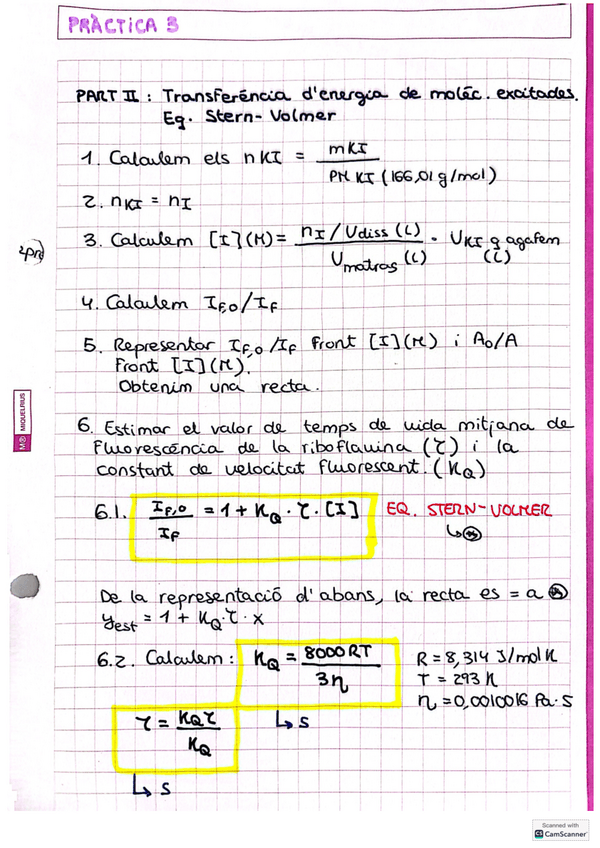 PRÀCTICA 3
PART II : Transferència d'energia de molèc. excitades.
Eq. Stern-Volmer
1. Calculem els n KI = mKI / PM KI (166,01 g/mol)
2. nKI = nI
3. Calculem [I](M) = nI / Vdiss (L) / Vmatràs (L) · VKI q agafem (L)
4. Calculem IF,0/IF
5. Representar IF,0/IF front [I](M) i A0/A
Front [I](M).
Obtenim una recta.
6. Estimar el valor de temps de vida mitjana de
Fluorescència de la riboflavina (τ) i la
constant de velocitat fluorescent. (KQ)
6.1. IF,0 / IF = 1 + KQ · τ · [I] EQ. STERN-VOLMER
De la representació d'abans, la recta es = a
yest = 1 + KQ·τ · x
6.2. Calculem : KQ = 8000RT / 3η
R = 8,314 J/mol K
T = 293 K
η = 0,0010016 Pa·s
τ = KQτ / KQ
↳ s
↳ s
MIQUELRIUS
Scanned with
CS CamScanner